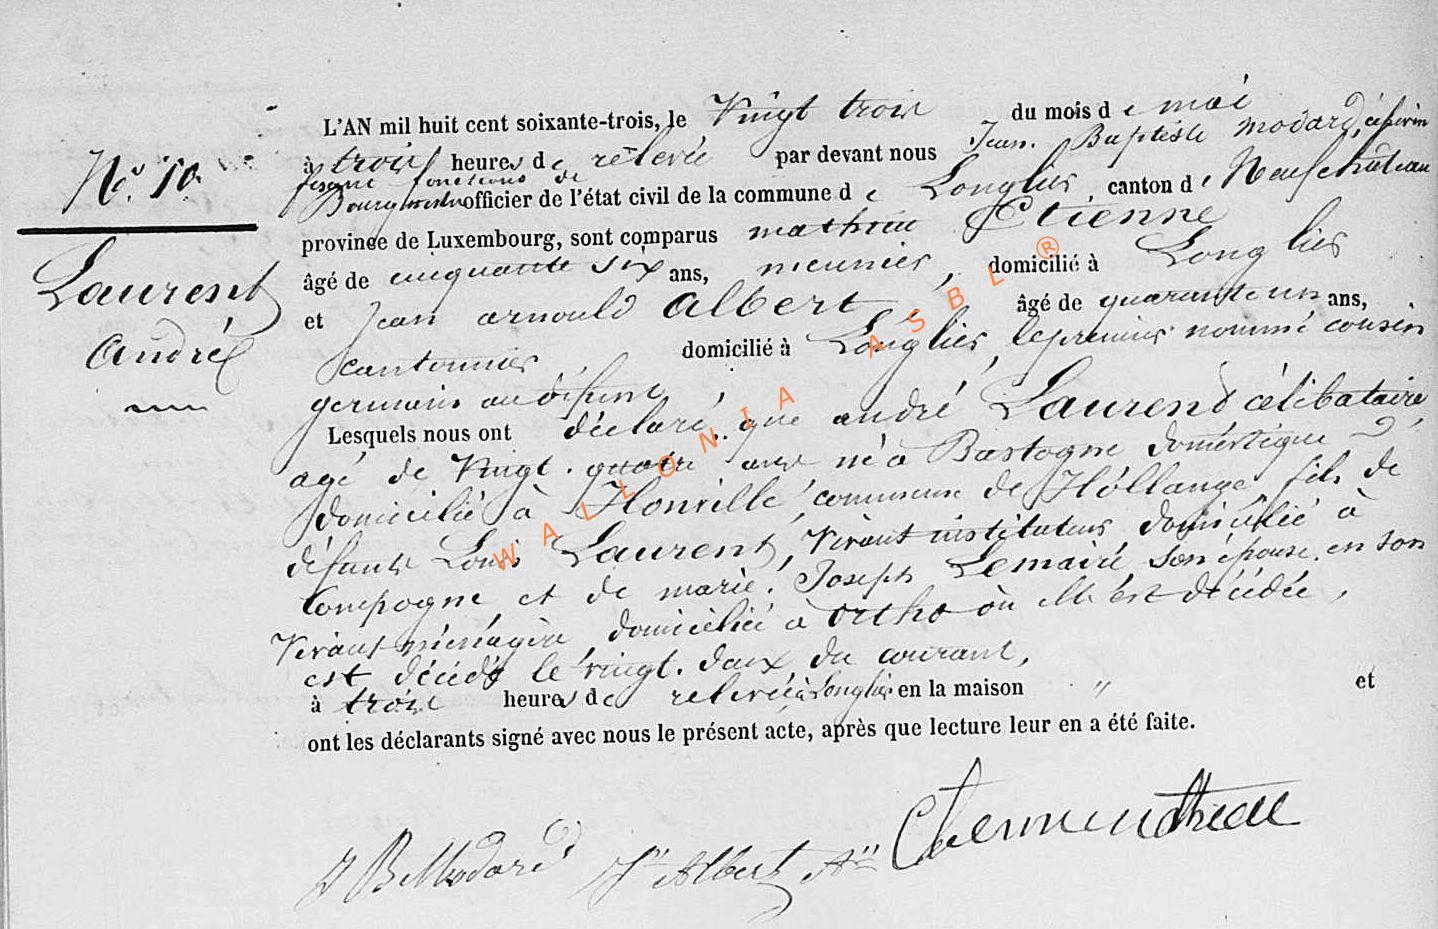 N.° 10.
Laurent
André
L'AN mil huit cent soixante-trois, le Vingt trois du mois de mai
à trois heures de relevée par devant nous Jean. Baptiste Modard, échevin
fesant fonctions de
Bourgmestre officier de l'état civil de la commune de Longlier canton de Neufchâteau
province de Luxembourg, sont comparus mathieu Etienne
âgé de cinquante six ans, meunier, domicilié à Longlier
et Jean arnould Albert âgé de quarante un ans,
cantonnier domicilié à Longlier, le premier nommé cousin
germain au défunt
Lesquels nous ont déclaré. que andré Laurent célibataire
agé de Vingt. quatre ans né à Bastogne doméstique
domicilié à Honville, commune de Hollange fils de
défunts Louis Laurent, Vivant instituteur, domicilié à
Compogne et de marie. Joseph Lemaire son épouse. en son
Vivant ménagère, domiciliée à Ortho où elle est décédée,
est décédé le vingt. deux du courant,
à trois heures de relevée à Longlier en la maison " et
ont les déclarants signé avec nous le présent acte, après que lecture leur en a été faite.
J B Modard Jn Albert Ad Etienne mathieu
WALLONIA ASBL ®